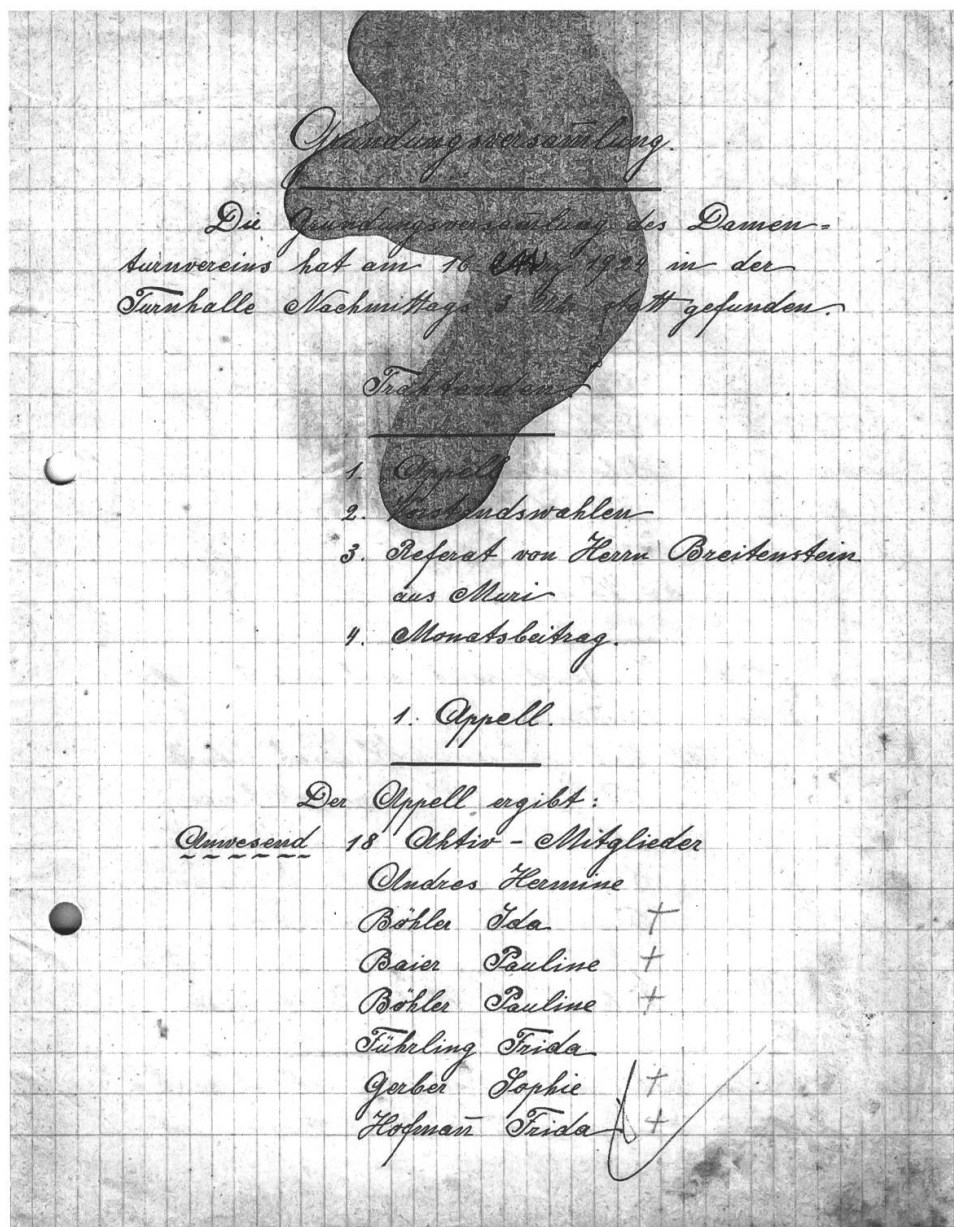 Gründungsversam̄lung.
Die Gründungsversam̄lung des Damen=
turnvereins hat am 16. 1924 in der
Turnhalle Nachmittags 3 Uhr statt gefunden.
Traktanden:
1. Appell
2. Vorstandswahlen
3. Referat von Herrn Breitenstein
aus Muri
4. Monatsbeitrag.
1. Appell.
Der Appell ergibt:
Anwesend 18 Aktiv - Mitglieder
Andres Hermine
Böhler Ida +
Baier Pauline +
Böhler Pauline +
Führling Frida
Gerber Sophie +
Hofman̄ Frida +